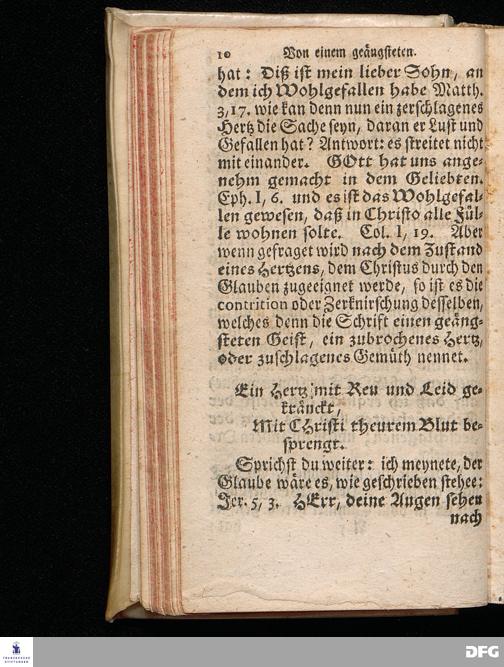 10 Von einem geängsteten.
hat: Diß ist mein lieber Sohn, an
dem ich Wohlgefallen habe Matth.
3,17. wie kan denn nun ein zerschlagenes
Hertz die Sache seyn, daran er Lust und
Gefallen hat? Antwort: es streitet nicht
mit einander. GOtt hat uns ange-
nehm gemacht in dem Geliebten.
Eph. I, 6. und es ist das Wohlgefal-
len gewesen, daß in Christo alle Fül-
le wohnen solte. Col. I, 19. Aber
wenn gefraget wird nach dem Zustand
eines Hertzens, dem Christus durch den
Glauben zugeeignet werde, so ist es die
contrition oder Zerknirschung desselben,
welches denn die Schrift einen geäng-
steten Geist, ein zubrochenes Hertz,
oder zuschlagenes Gemüth nennet.
Ein Hertz mit Reu und Leid ge-
kränckt,
Mit CHristi theurem Blut be-
sprengt.
Sprichst du weiter: ich meynete, der
Glaube wäre es, wie geschrieben stehet:
Jer. 5, 3. HErr, deine Augen sehen
nach
FRANCKESCHE
STIFTUNGEN
DFG